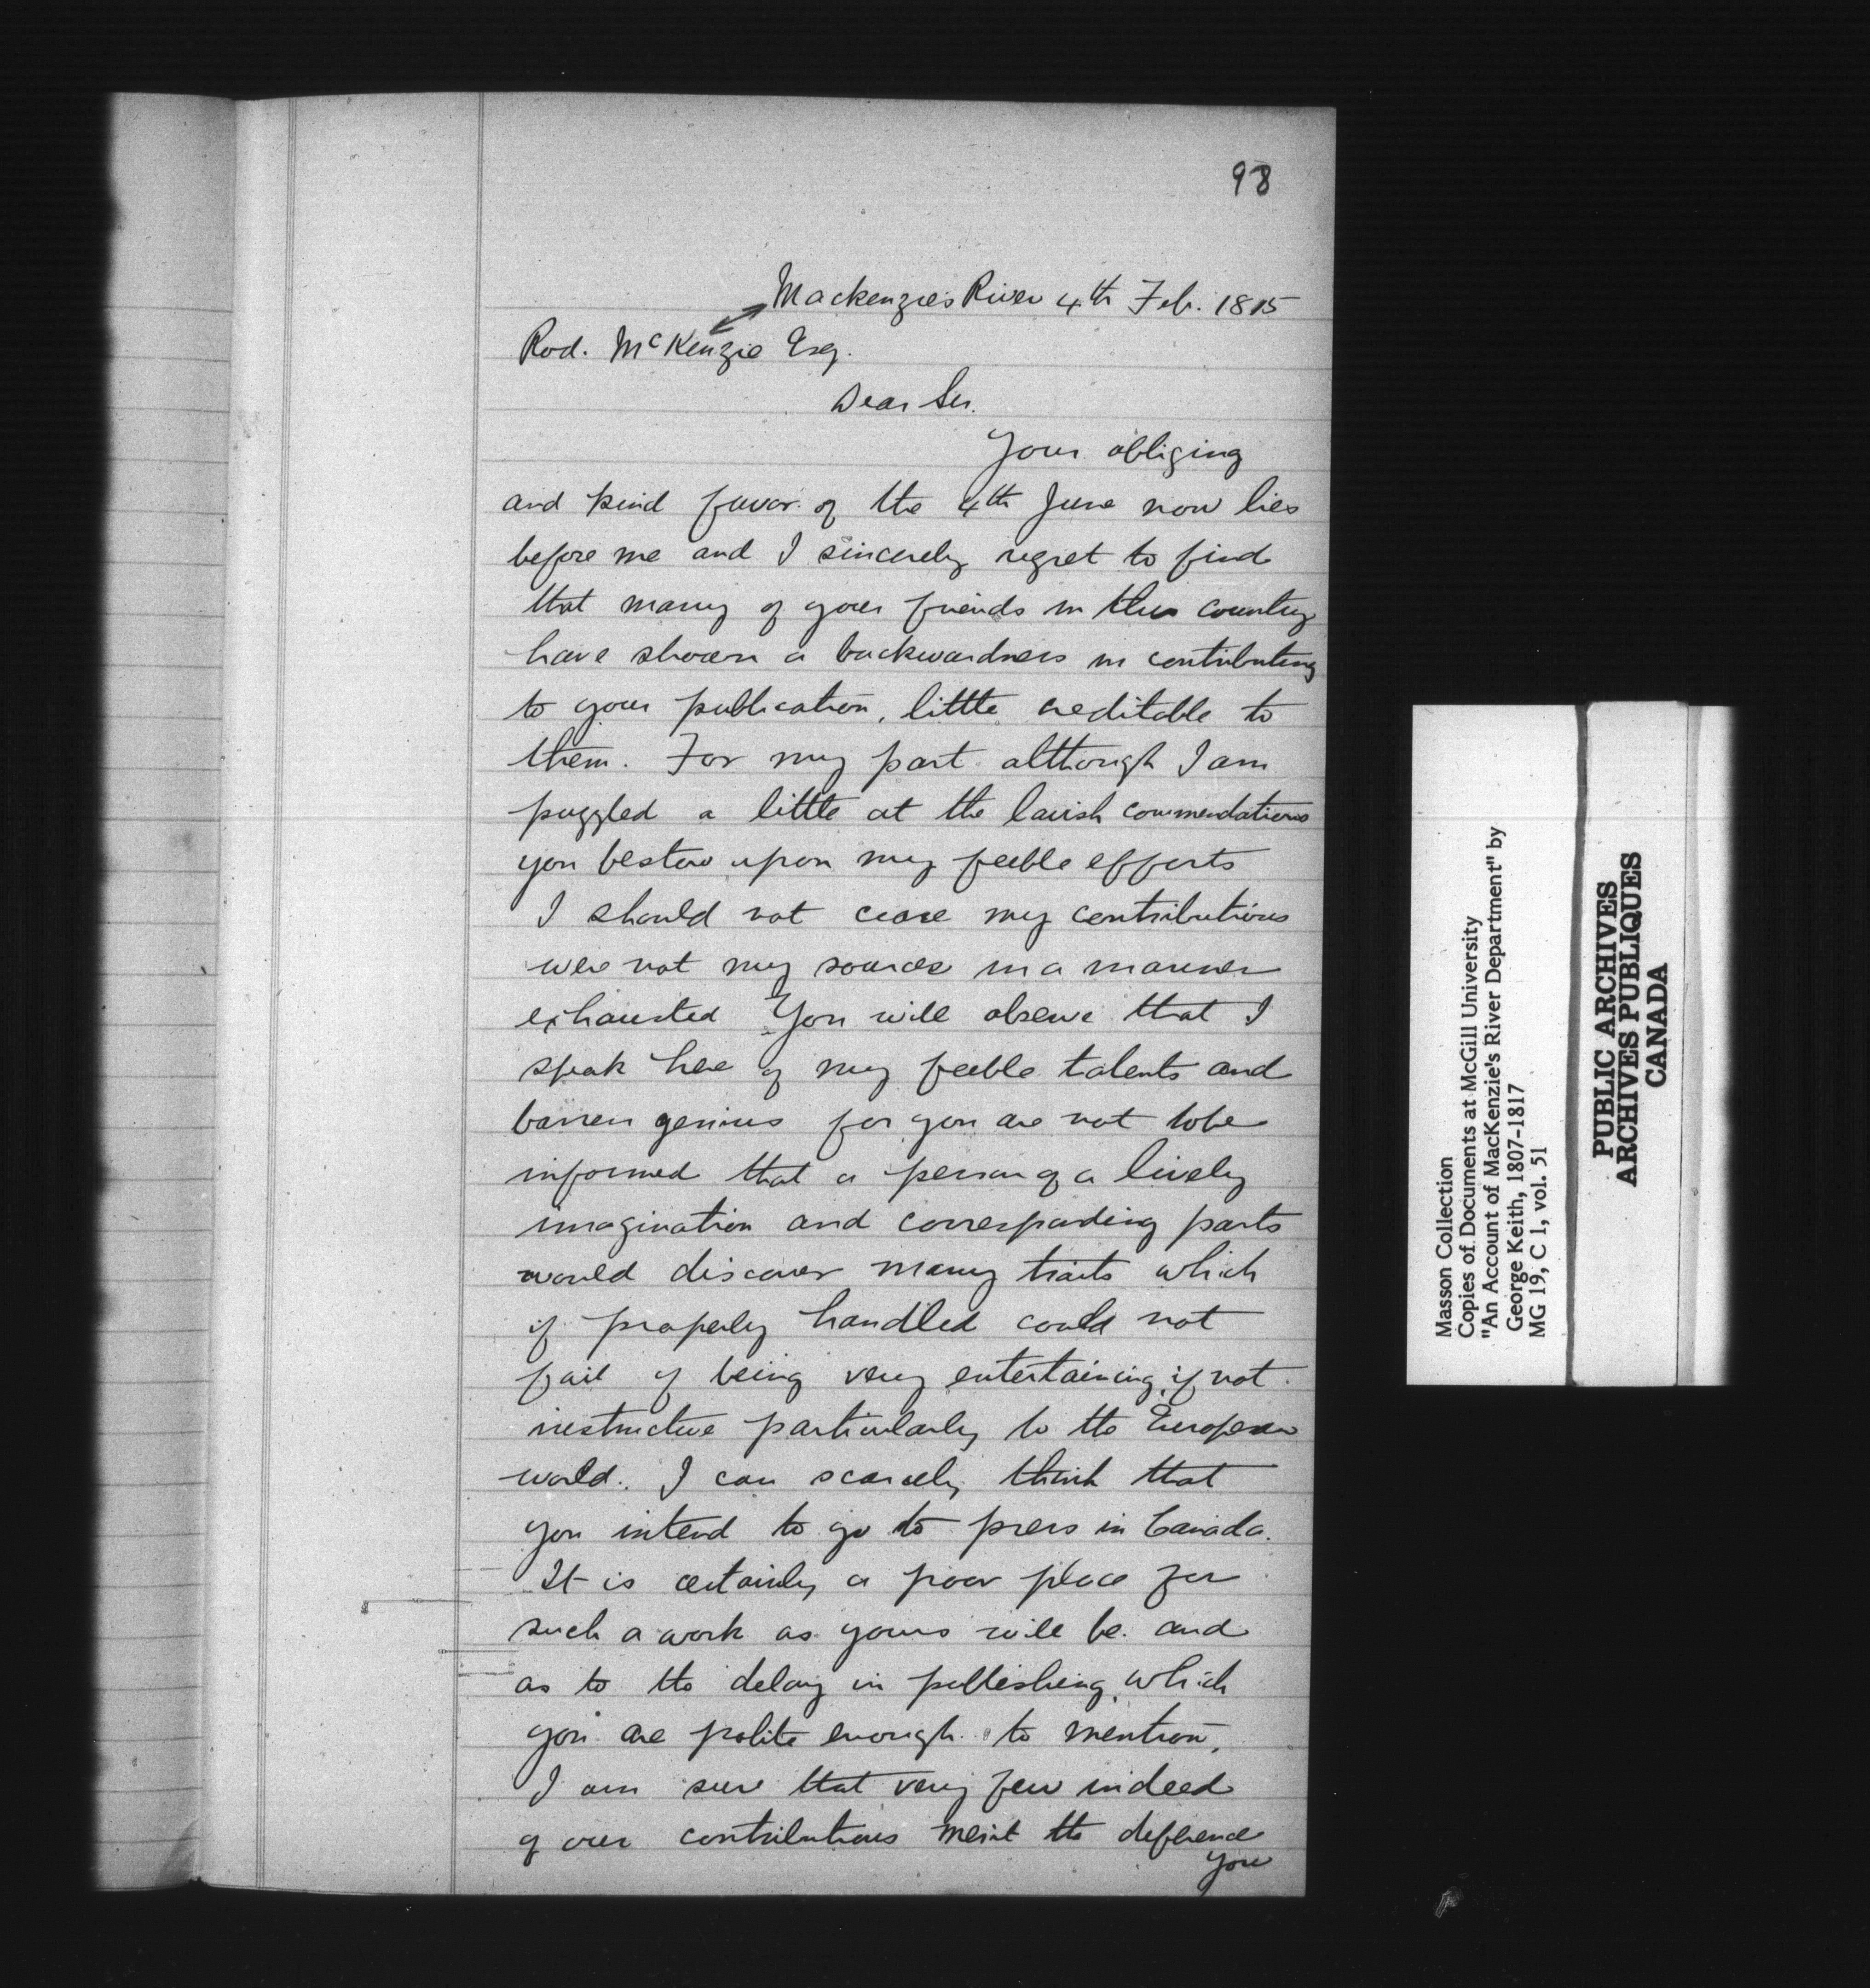 98
Mackenzie's River 4th Feb. 1815
Rod. McKenzie Esq.
Dear Sir.
Your obliging
and kind favor of the 4th June now lies
before me and I sincerely regret to find
that many of your friends in this country
have shown a backwardness in contributing
to your publication, little creditable to
them. For my part although I am
puzzled a little at the lavish commendations
you bestow upon my feeble efforts
I should not cease my contributions
were not my sources in a manner
exhausted You will observe that I
speak here of my feeble talents and
barren genius for you are not to be
informed that a person of a lively
imagination and corresponding parts
would discover many traits which
if properly handled could not
fail of being very entertaining, if not
instructive particularly to the European
world. I can scarcely think that
you intend to go to press in Canada.
It is certainly a poor place for
such a work as yours will be and
as to the delay in publishing, which
you are polite enough to mention,
I am sure that very few indeed
of our contributions merit the deference
you
Masson Collection
Copies of Documents at McGill University
"An Account of MacKenzie's River Department" by
George Keith, 1807-1817
MG 19, C 1, vol. 51
PUBLIC ARCHIVES
ARCHIVES PUBLIQUES
CANADA